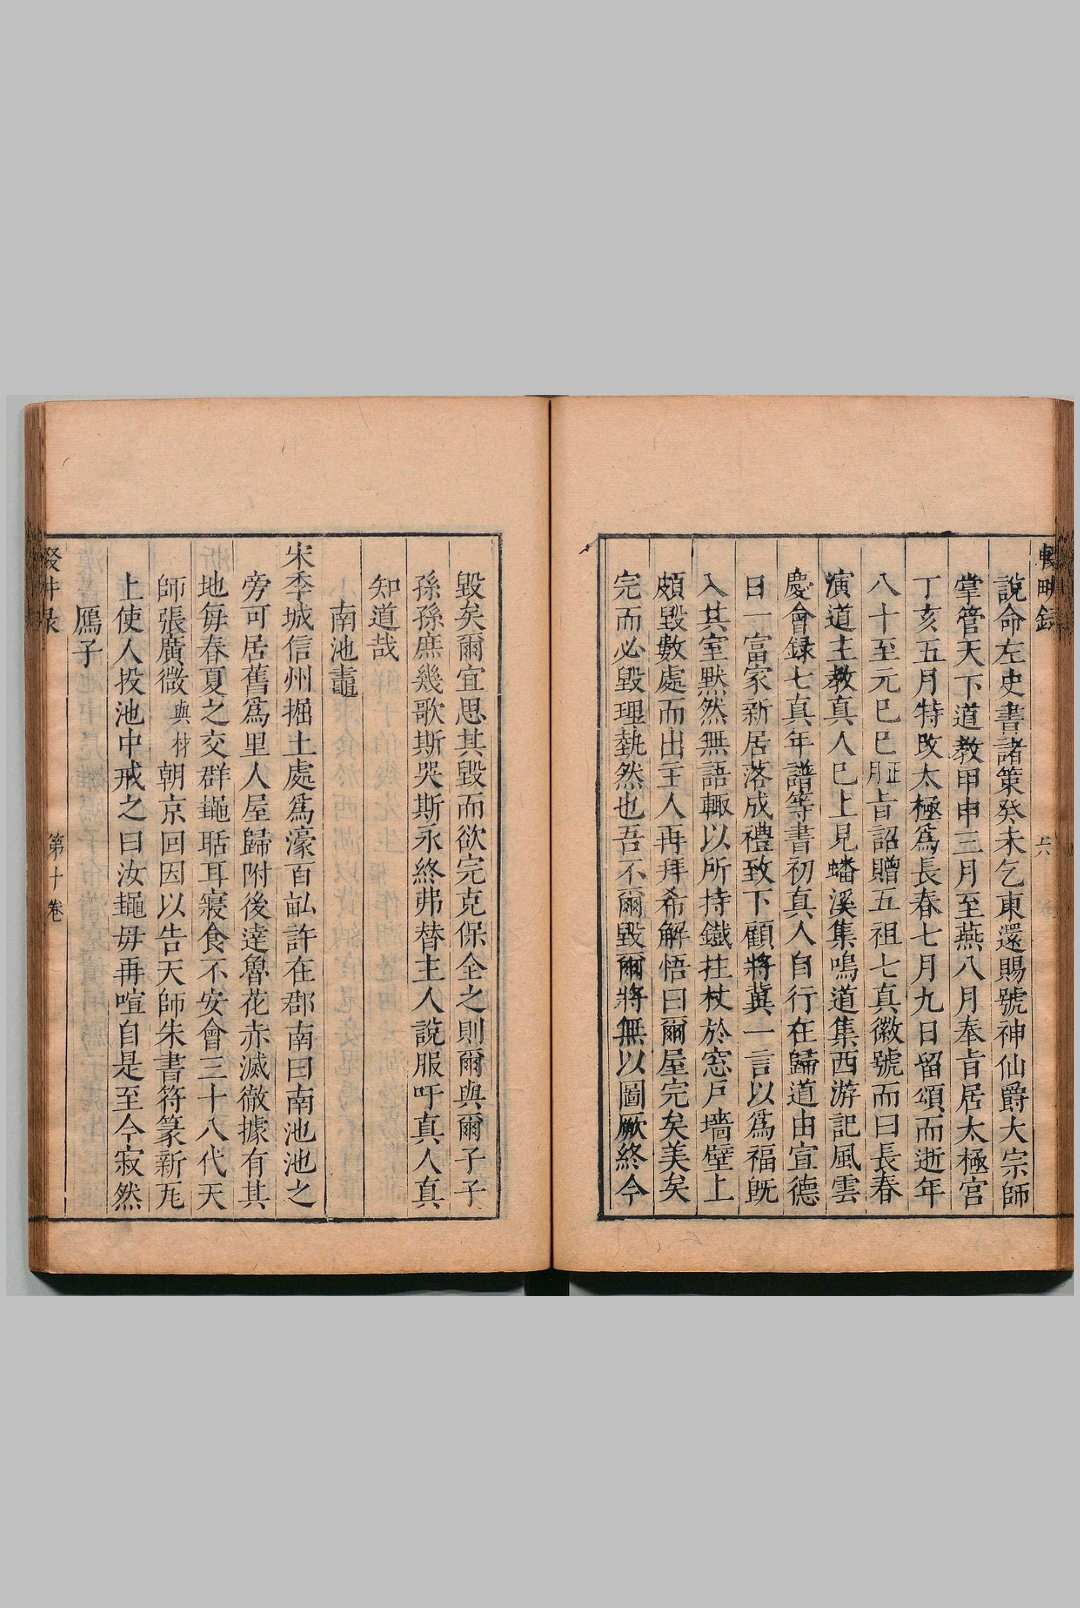 輟畊錄
六
說命左史書諸策癸未乞東還賜號神仙爵大宗師
掌管天下道教甲申三月至燕八月奉旨居太極宮
丁亥五月特改太極爲長春七月九日留頌而逝年
八十至元己巳正旨詔贈五祖七真徽號而曰長春
演道主教真人已上見蟠溪集鳴道集西游記風雲
慶會録七真年譜等書初真人自行在歸道由宣德
日一富家新居落成禮致下顧將冀一言以爲福旣
入其室默然無語輙以所持鐵拄杖於窓戶墻壁上
頗毀數處而出主人再拜希解悟曰爾屋完矣美矣
完而必毀理埶然也吾不爾毀爾將無以圖厥終今
毀矣爾宜思其毀而欲完克保全之則爾與爾子子
孫孫庶幾歌斯哭斯永終弗替主人說服吁真人真
知道哉
南池鼃
宋季城信州掘土處爲濠百畆許在郡南曰南池池之
旁可居舊爲里人屋歸附後達魯花赤滅徹據有其
地每春夏之交群鼃聒耳寢食不安會三十八代天
師張廣微與材朝京回因以告天師朱書符篆新瓦
上使人投池中戒之曰汝鼃毋再喧自是至今寂然
鴈子
第十卷